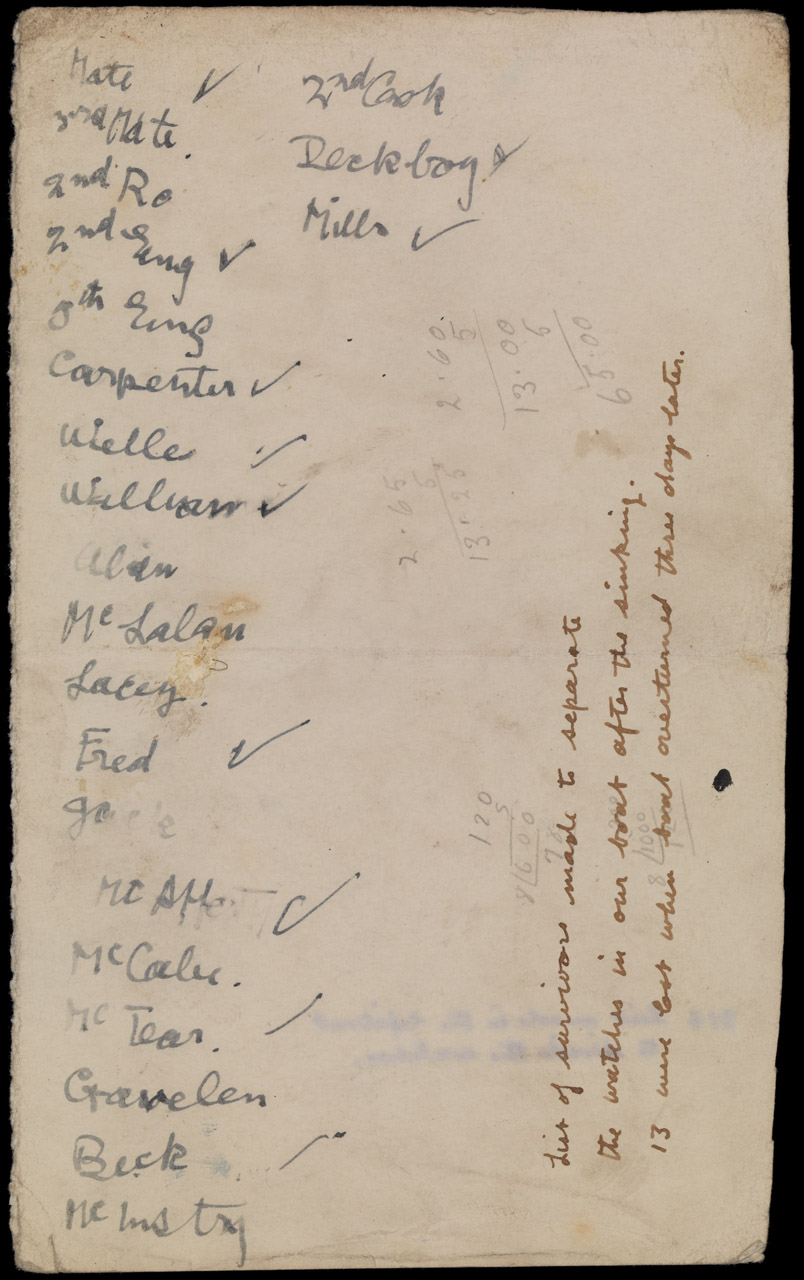 Mate ✓
3rd Mate.
2nd Ro
2nd Eng ✓
5th Eng
Carpenter ✓
Wielle ✓
William ✓
Alan
Mc Lalan
Lacey.
Fred ✓
Mc
McCabe.
Mc Tear.
Gravelen
Beck
Mc Instry
2nd Cook
Deckboy ✓
Mills ✓
2.60
5
13.00
5
65.00
2.65
5
13.25
120
5
600
List of survivors made to separate
the watches in our boat after the sinking.
13 were lost when boat overturned three days later.